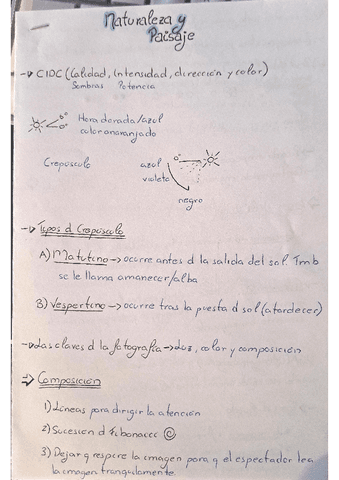 Naturaleza y
Paisaje
CIDC (Calidad, intensidad, dirección y color)
Sombras Potencia
6°
0°
Hora dorada/azul
color anaranjado
Crepúsculo
azul
violeta
0°
negro
Tipos d Crepúsculo
A) Matutino → ocurre antes d la salida del sol. Tmb
se le llama amanecer/alba
B) Vespertino → ocurre tras la puesta d sol (atardecer)
Las claves d la fotografía → luz, color y composición
⇒ Composición
1) Líneas para dirigir la atención
2) Sucesión d Fibonacci
3) Dejar q respire la imagen para q el espectador lea
la imagen tranquilamente.